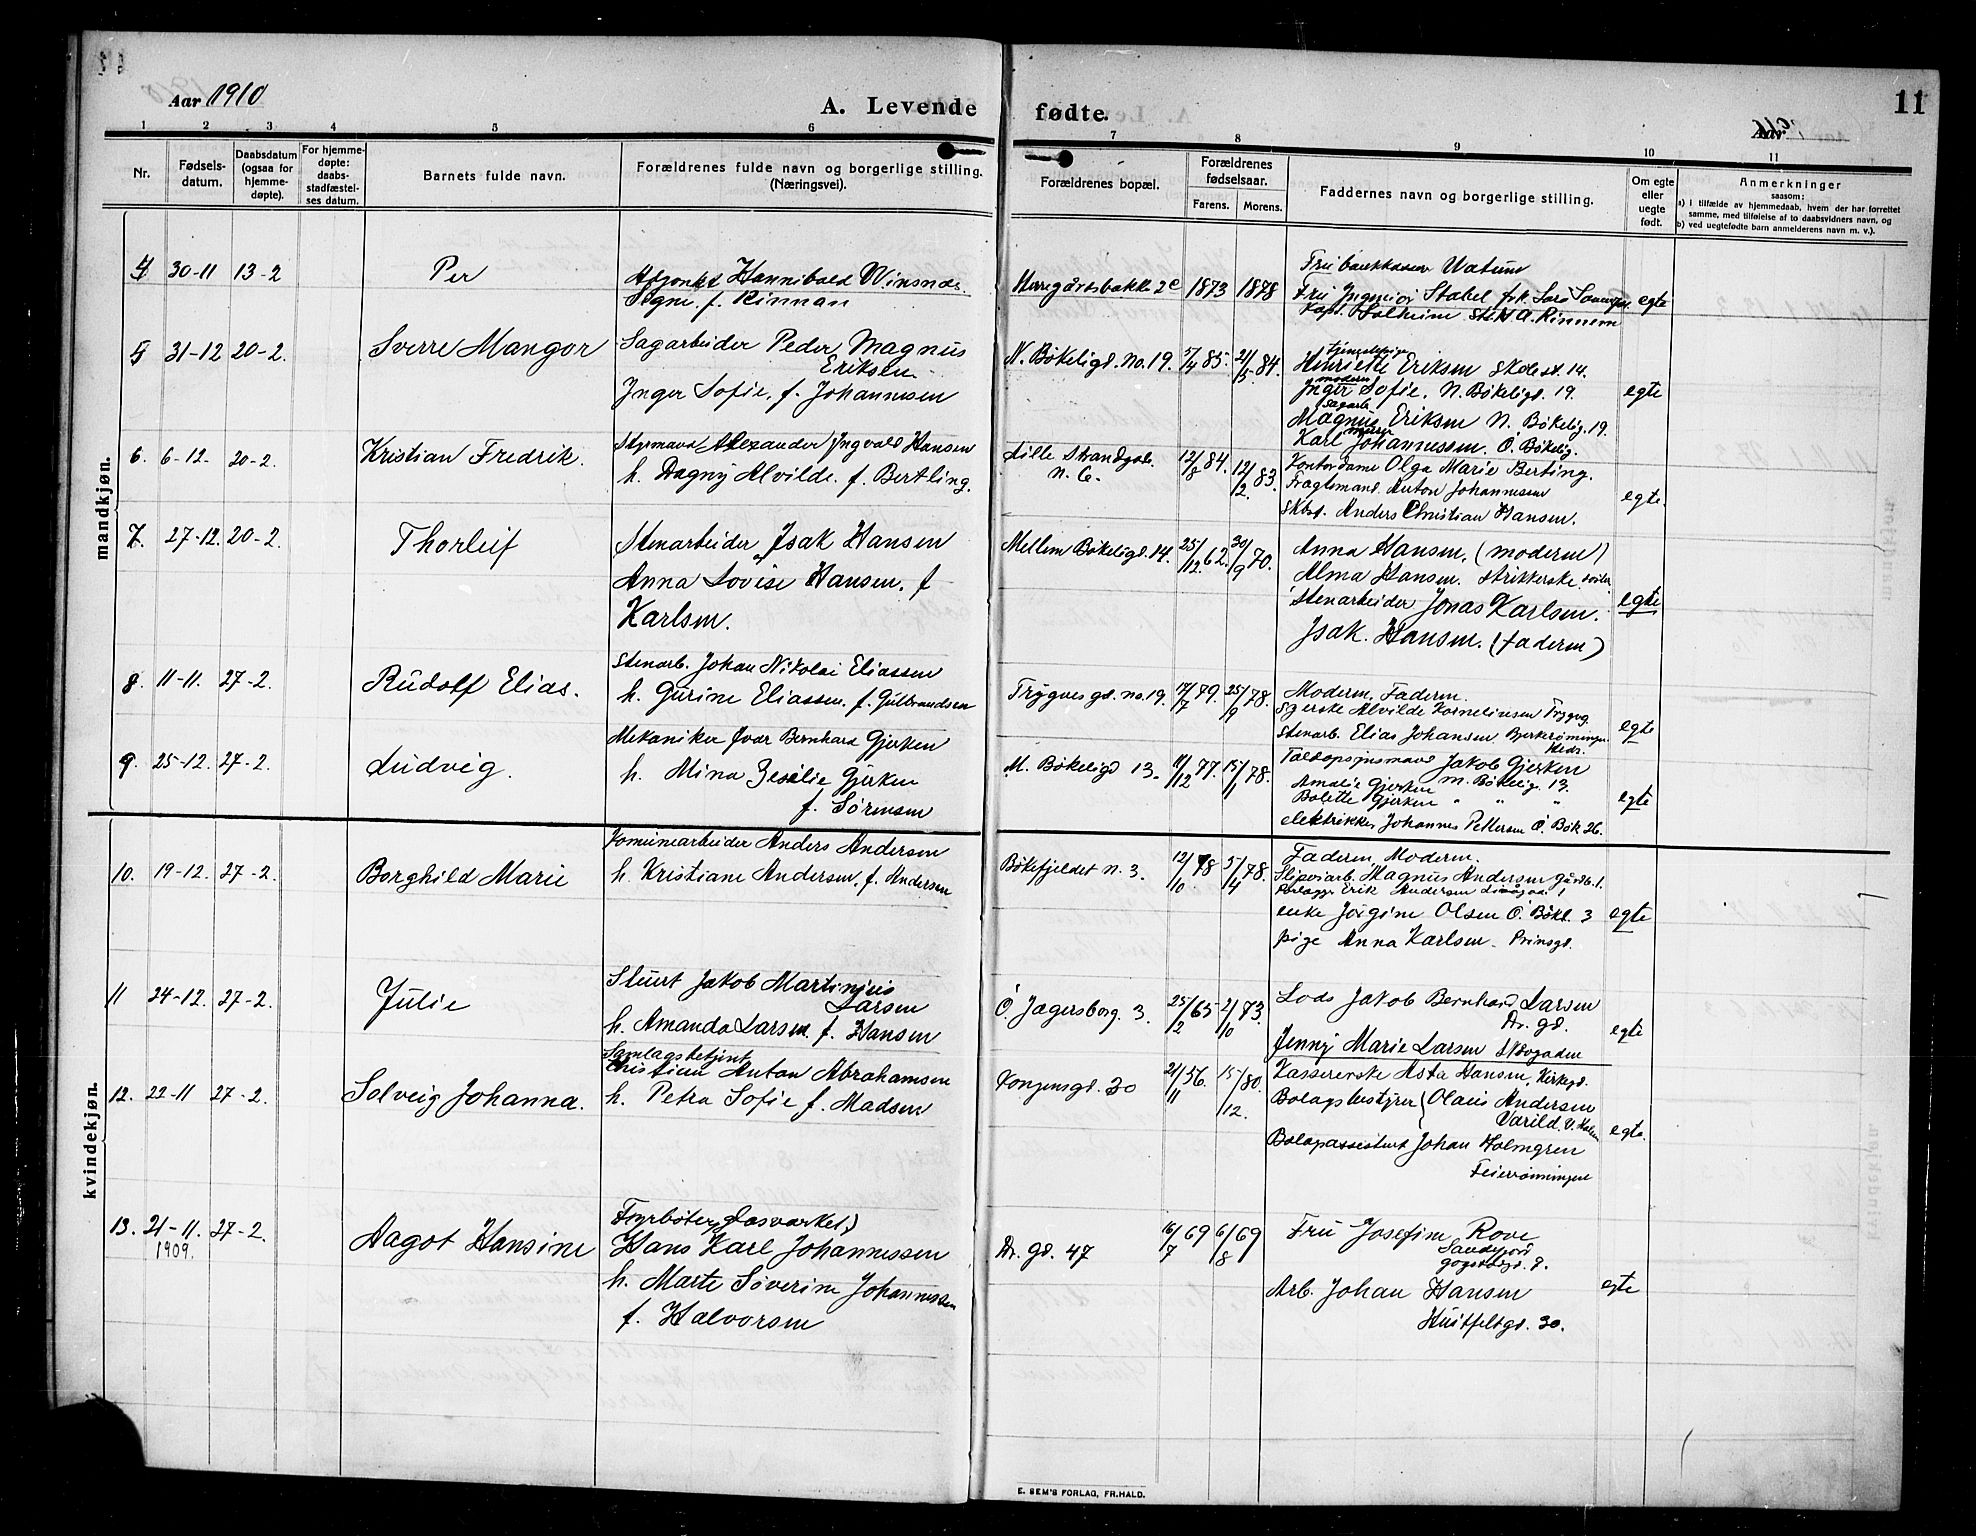 Aar 1910
A. Levende
fødte.
11
1 2 3 4 5 6 7 8 9 10 11
Nr.
Fødsels-
datum.
Daabsdatum
(ogsaa for
hjemme-
døpte).
For hjemme-
døpte:
daabs-
stadfæstel-
ses datum.
Barnets fulde navn.
Forældrenes fulde navn og borgerlige stilling.
(Næringsvei).
Forældrenes bopæl.
Forældrenes
fødselsaar.
Farens. Morens.
Faddernes navn og borgerlige stilling.
Om egte
eller
uegte
født.
Anmerkninger
saasom:
a) i tilfælde av hjemmedaab, hvem der har forrettet
samme, med tilføielse af to daabsvidners navn, og
b) ved uegtefødte barn anmelderens navn m. v.).
mandkjøn.
4 30-11 13-2
Per
Adjonkt Hannibald Winsnes
Signe f. Rinnan
Herregårdsbakke 2c 1873 1878
Fru bankkasser Watum
Fru Ingeniør Stabel frk. Sara
Kapt. Solheim
egte
5 31-12 20-2.
Sverre Mangor
Sagarbeider Peder Magnus
Eriksen
Inger Sofie, f. Johannesen
N. Bøkeligd. No. 19. 5/4 85. 21/5 84.
tjenestepige
Henriette Eriksen
moderen
Inger Sofie. N. Bøkeligd. 19.
sagarb.
Magnus Eriksen N. Bøkelig. 19.
murer
Karl Johannessen. Ö. Bøkelig.
egte
6. 6-12. 20-2.
Kristian Fredrik.
Styrmand Alexander Ingvald Hansen
h. Dagny Alvilde. f. Bertling.
Lille Strandgade.
N. 6. 12/8 84. 12/12 83.
Kontordame Olga Marie Berting.
Fragtemand. Anton Johannesen
Skbst. Anders Christian Hansen.
egte.
7. 27-12. 20-2.
Thorleif
Stenarbeider Isak Hansen
Anna Lovise Hansen. f
Karlsen.
Mellem Bøkeligd. 14. 25/12 62. 30/9 70.
Anna Hansen. (moderen)
Alma Hansen. strikkerske
Stenarbeider Jonas Karlsen.
Isak. Hansen. (faderen)
egte
8. 11-11. 27-2.
Rudolf Elias.
Stenarb. Johan Nikolai Eliassen
h. Gurine Eliassen. f. Gulbrandsen
Trygves gd. no. 19. 17/7 79. 25/9 78.
Moderen, Faderen.
Syerske Alvilde Kornelinsen Trygvg.
Stenarb. Elias Johansen
egte
9. 25-12. 27-2.
Ludvig.
Mekaniker Ivar Bernhard Gjerken
h. Mina Gjerken
f. Sørensen
M. Bøkeligd 13. 77. 15/1 78.
Toldopsynsmand Jakob Gjerken
m. Bøkelig. 13.
Amalie Gjerken
Bolette Gjerken " " "
elektrikker Johannes Pettersen Ö. Bøk 26.
egte
kvindekjøn.
10. 19-12. 27-2.
Borghild Marie
Komunearbeider Anders Andersen
h. Kristiane Andersen, f. Andersen
Bøkefjeldet N. 3. 12/10 78 5/4 78.
Faderen, Moderen.
Sliperiarb. Magnus Andersen
Erik Andersen
enke Jørgine Olsen Ö. Bökl. 3
pige Anna Karlsen. Prinsgd.
egte
11 24-12. 27-2.
Julie
Stuert Jakob Martinius
Larsen
h. Amanda Larsen. f. Hansen
Ö. Jægersborg. 3. 25/2 65 2/10 73.
Lods Jakob Bernhard Larsen
Dr. gd.
Jenny Marie Larsen
egte
12. 22-11 27-2.
Solveig Johanna.
Samlagsbetjent
Christian Anton Abrahamsen
h. Petra Sofie f. Madsen
Kongensgd. 30 21/11 56. 15/12 80.
Kassererske Asta Hansen, Kirkegd.
Bolagsbestyrer Olaus Andersen
Bolagsassistent Johan Holmgren
Feierrømningen
egte.
13. 21-11. 27-2.
1909.
Aagot Hansine
Fyrbøter, Gasværket)
Hans Karl Johannessen
h. Marte Søverine Johannessen
f. Halvorsen
Dr. gd. 47 16/7 69 6/8 69
Fru Josefine Rove
Sandefjord
Arb. Johan Hansen
Huitfeltgd. 30.
egte
E. SEM'S FORLAG, FR.HALD.